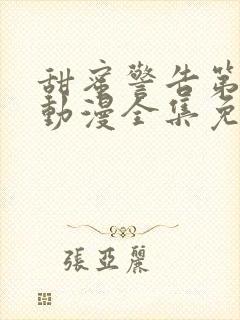 甜蜜警告第
動漫全集免
張亞麗